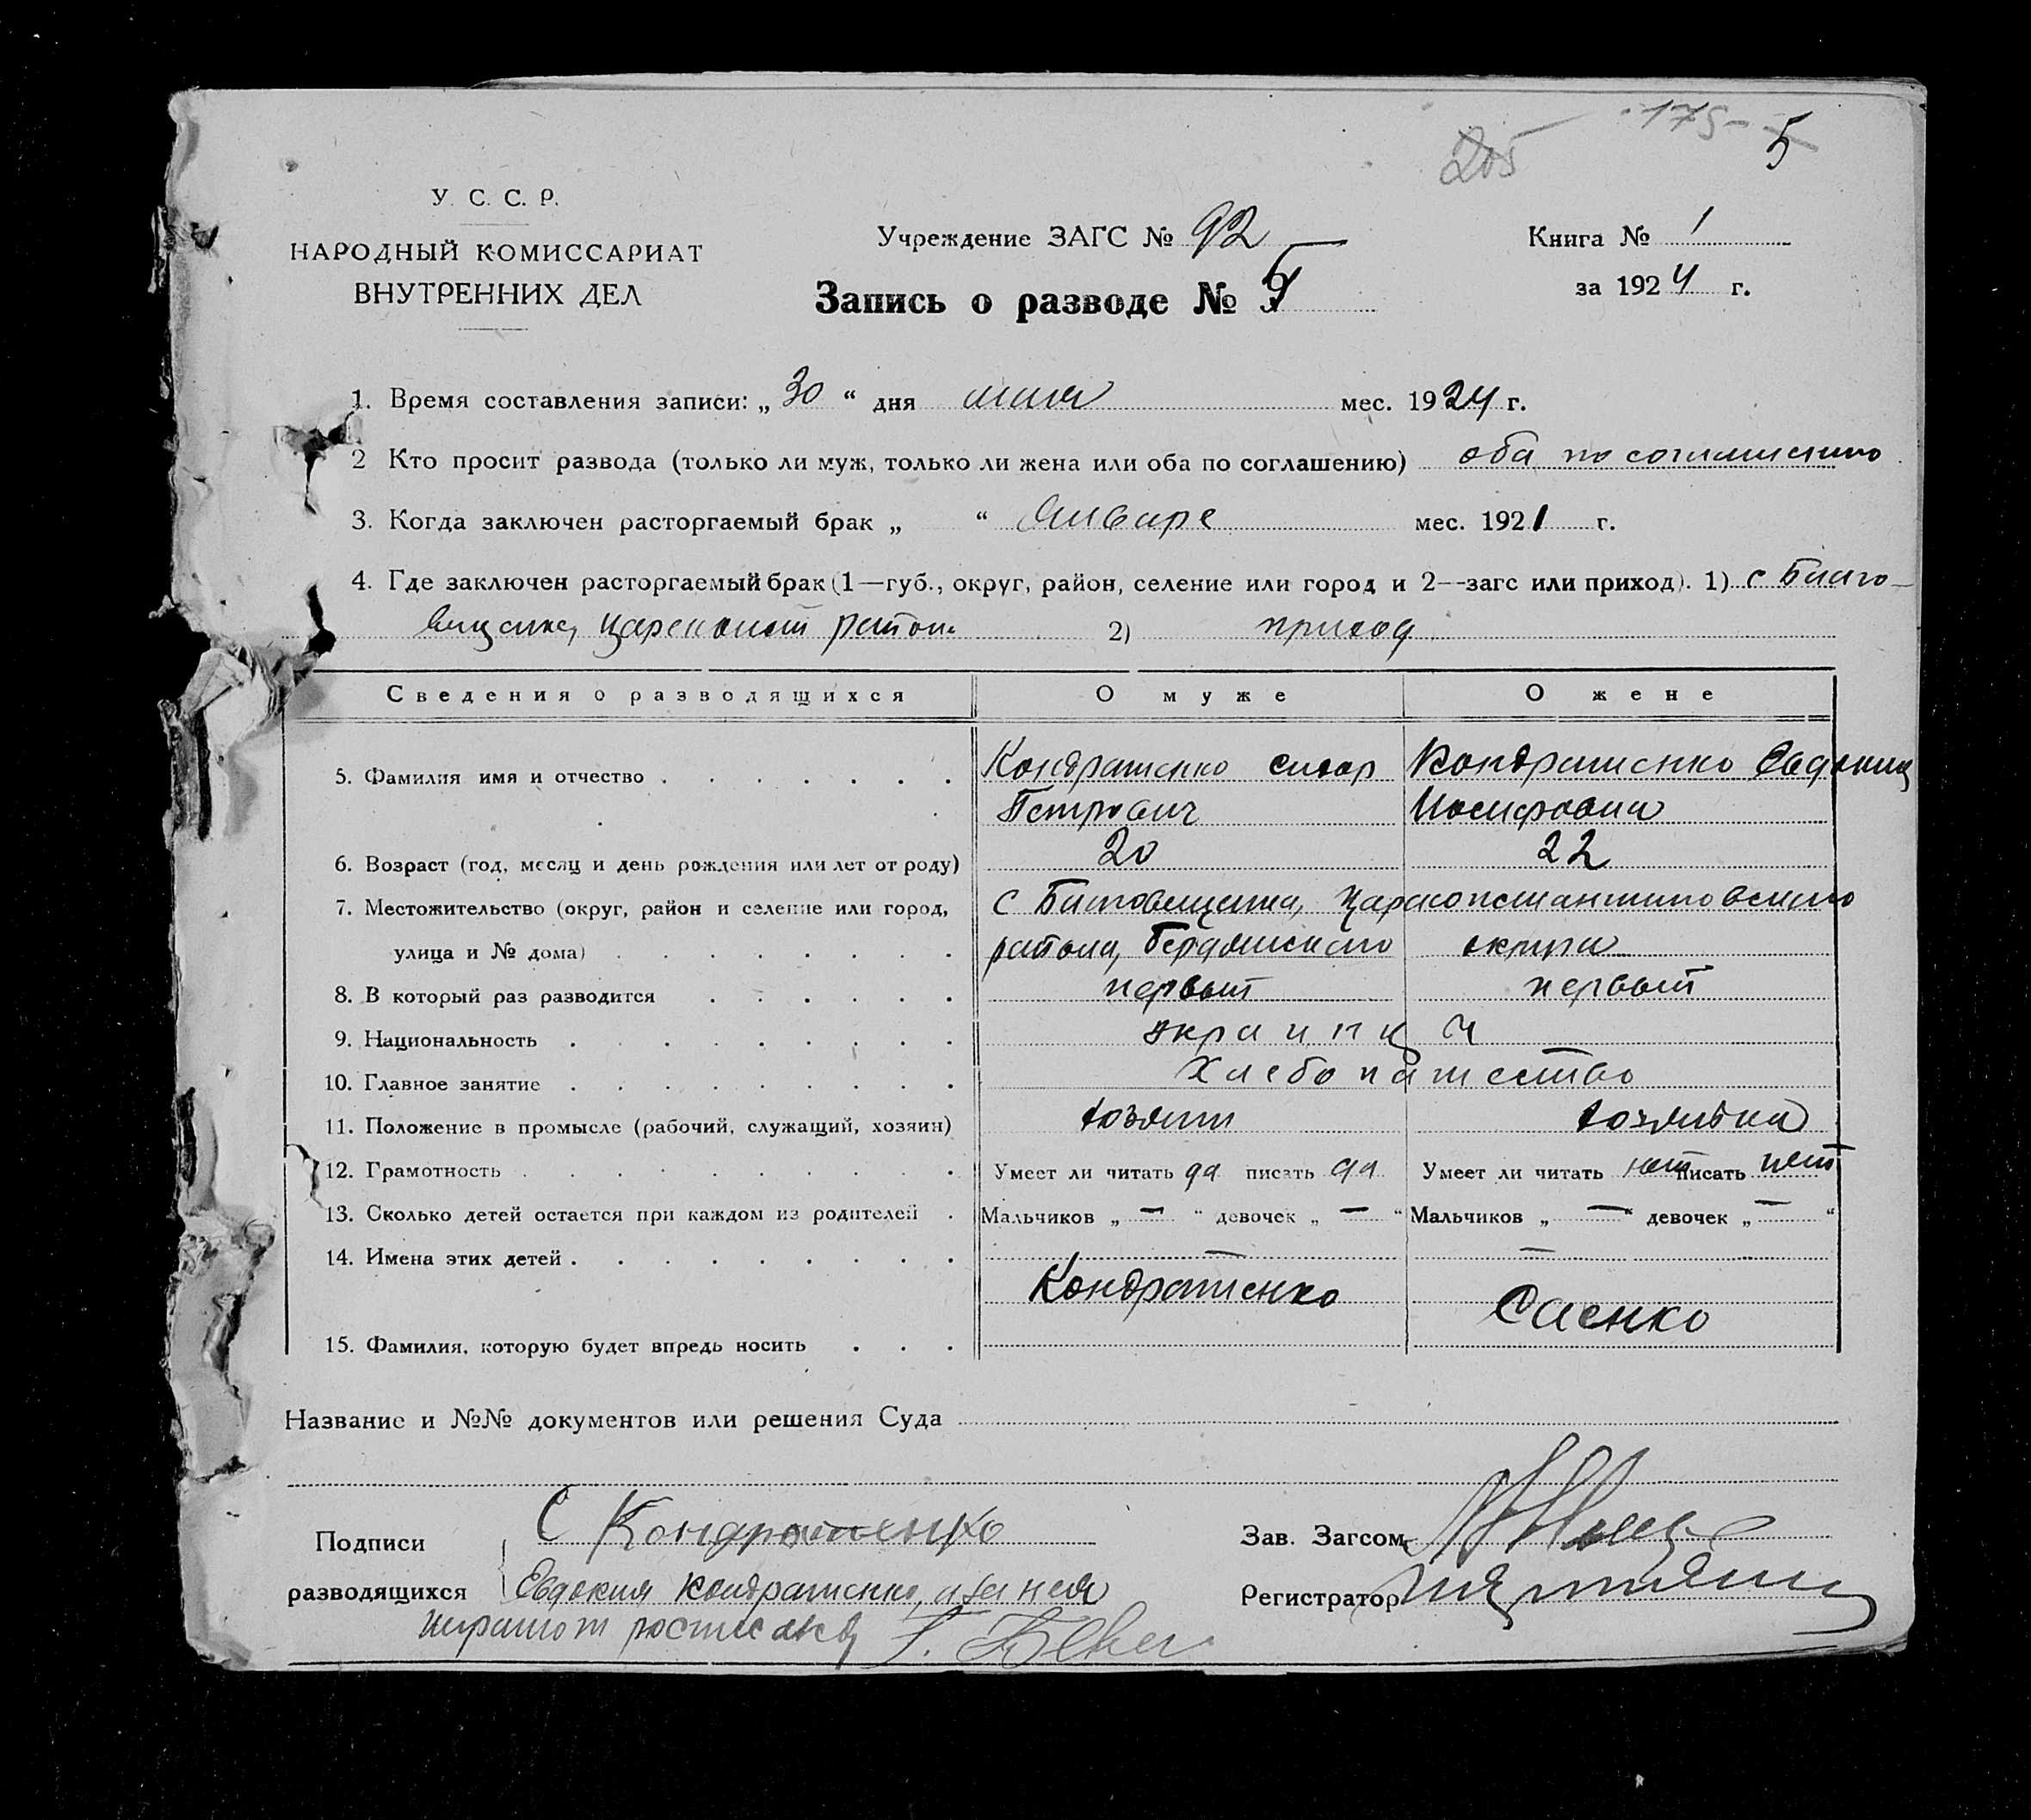 205 175 5
У. С. С. Р.
НАРОДНЫЙ КОМИССАРИАТ
ВНУТРЕННИХ ДЕЛ
Учреждение ЗАГС № 92
Книга № 1
за 1924 г.
Запись о разводе № 5
1. Время составления записи: „ 30 “ дня мая мес. 1924 г.
2 Кто просит развода (только ли муж, только ли жена или оба по соглашению) оба по соглашению
3. Когда заключен расторгаемый брак „ “ Январе мес. 1921 г.
4. Где заключен расторгаемый брак (1—губ., округ, район, селение или город и 2—загс или приход). 1) с Благо-
вещенка, Царекон район 2) приход
Сведения о разводящихся О муже О жене
5. Фамилия имя и отчество Кондратенко Сидор Кондратенко Евдокия
Петрович Иосифовна
6. Возраст (год, месяц и день рождения или лет от роду) 20 22
7. Местожительство (округ, район и селение или город, с Благовещенка, Цареконстантиновского
улица и № дома) района, Бердянского округа
8. В который раз разводится первый первый
9. Национальность украинцы
10. Главное занятие Хлебопашество
11. Положение в промысле (рабочий, служащий, хозяин) хозяин хозяйка
12. Грамотность Умеет ли читать да писать да Умеет ли читать нет писать нет
13. Сколько детей остается при каждом из родителей Мальчиков „ — “ девочек „ — “ Мальчиков „ — “ девочек „ — “
14. Имена этих детей — —
Кондратенко Саенко
15. Фамилия, которую будет впредь носить
Название и №№ документов или решения Суда
Подписи С Кондратенко Зав. Загсом
разводящихся Евдокия Кондратенко, а за нея Регистратор
неграмот росписався Г.